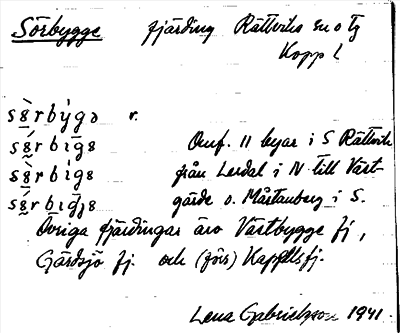 Sörbygge fjärding Rättviks sn o tg
Kopp l
sèrbýgə r.
sèrbige Omf. 11 byar i S Rättvik
sèrbige från Lerdal i N till Väst-
sèrbigje gärde o. Mårtanberg i S.
Övriga fjärdingar äro Västbygge fj,
Gärdsjö fj. och (förr) Kappells fj.
Lena Gabrielsson 1941.